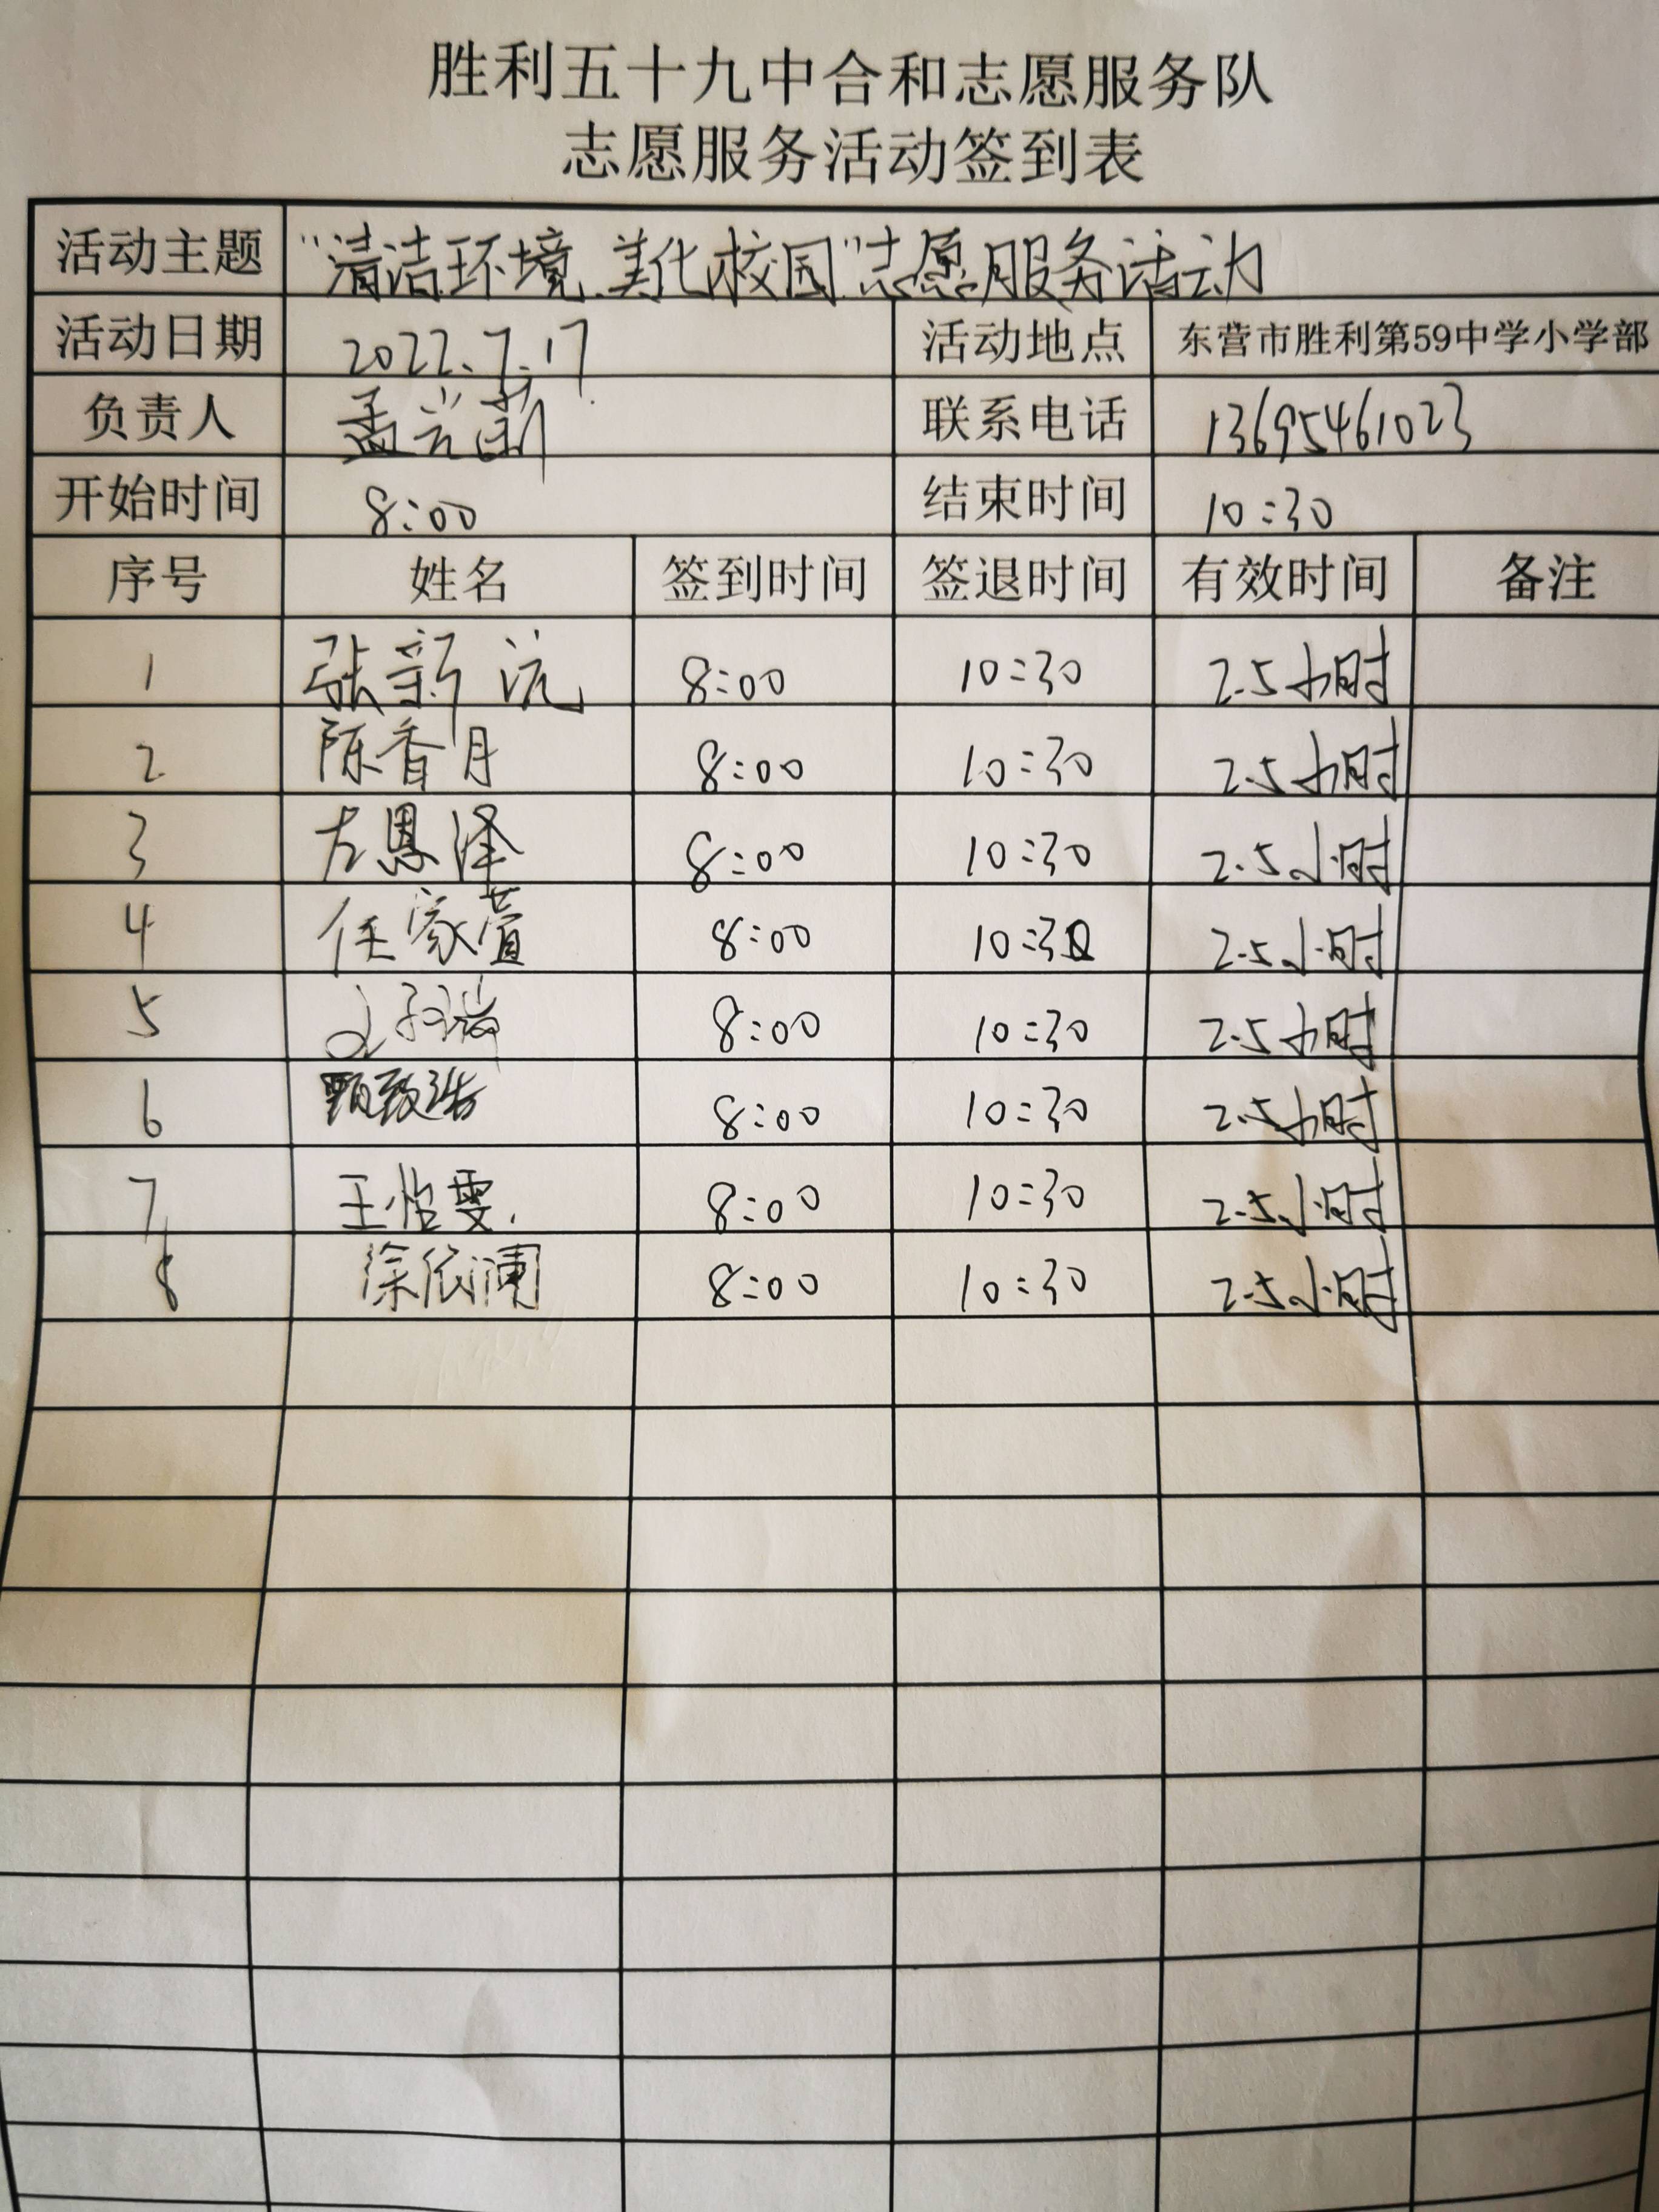 胜利五十九中合和志愿服务队
志愿服务活动签到表
活动主题 “清洁环境、美化校园”志愿服务活动
活动日期 2022.7.17 活动地点 东营市胜利第59中学小学部
负责人 孟兰莉 联系电话 13695461023
开始时间 8:00 结束时间 10:30
序号 姓名 签到时间 签退时间 有效时间 备注
1 张新沆 8:00 10:30 2.5小时
2 陈香月 8:00 10:30 2.5小时
3 左恩泽 8:00 10:30 2.5小时
4 任家萱 8:00 10:30 2.5小时
5 8:00 10:30 2.5小时
6 甄致浩 8:00 10:30 2.5小时
7 王怡雯. 8:00 10:30 2.5小时
8 徐依澜 8:00 10:30 2.5小时